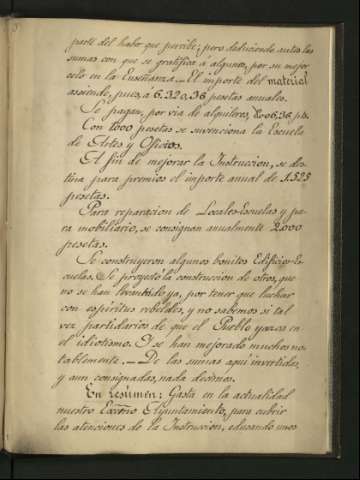 parte del haber que percibe; pero deduciendo antes las
sumas con que se gratifica á algunos, por su mejor
celo en la Enseñanza._ El importe del material
asciende, pues, á 6.320,36 pesetas anuales.
Se pagan, por via de alquileres, pts.
Con 1000 pesetas se suvenciona la Escuela
de Artes y Oficios.
A fin de mejorar la Instruccion, se des-
tina para premios el importe anual de 1.525
pesetas.
Para reparacion de Locales-Escuelas y pa-
ra mobiliario, se consignan anualmente 2.000
pesetas.
Se construyeron algunos bonitos Edificios-Es-
cuelas. Se proyectó la construccion de otros, que
no se han levantado ya, por tener que luchar
con espíritus rebeldes, y no sabemos si tal
vez partidarios de que el Pueblo yazca en
el idiotismo. Y se han mejorado muchos no-
tablemente._ De las sumas aquí invertidas,
y aun consignadas, nada decimos.
En resúmen: Gasta en la actualidad
nuestro Excmo Ayuntamiento, para cubrir
las atenciones de la Instruccion, educando unos